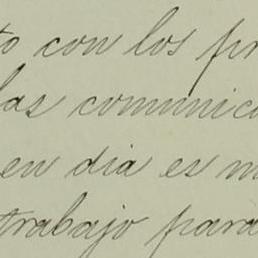 to con los pr
las comunic
en dia es m
trabajo para